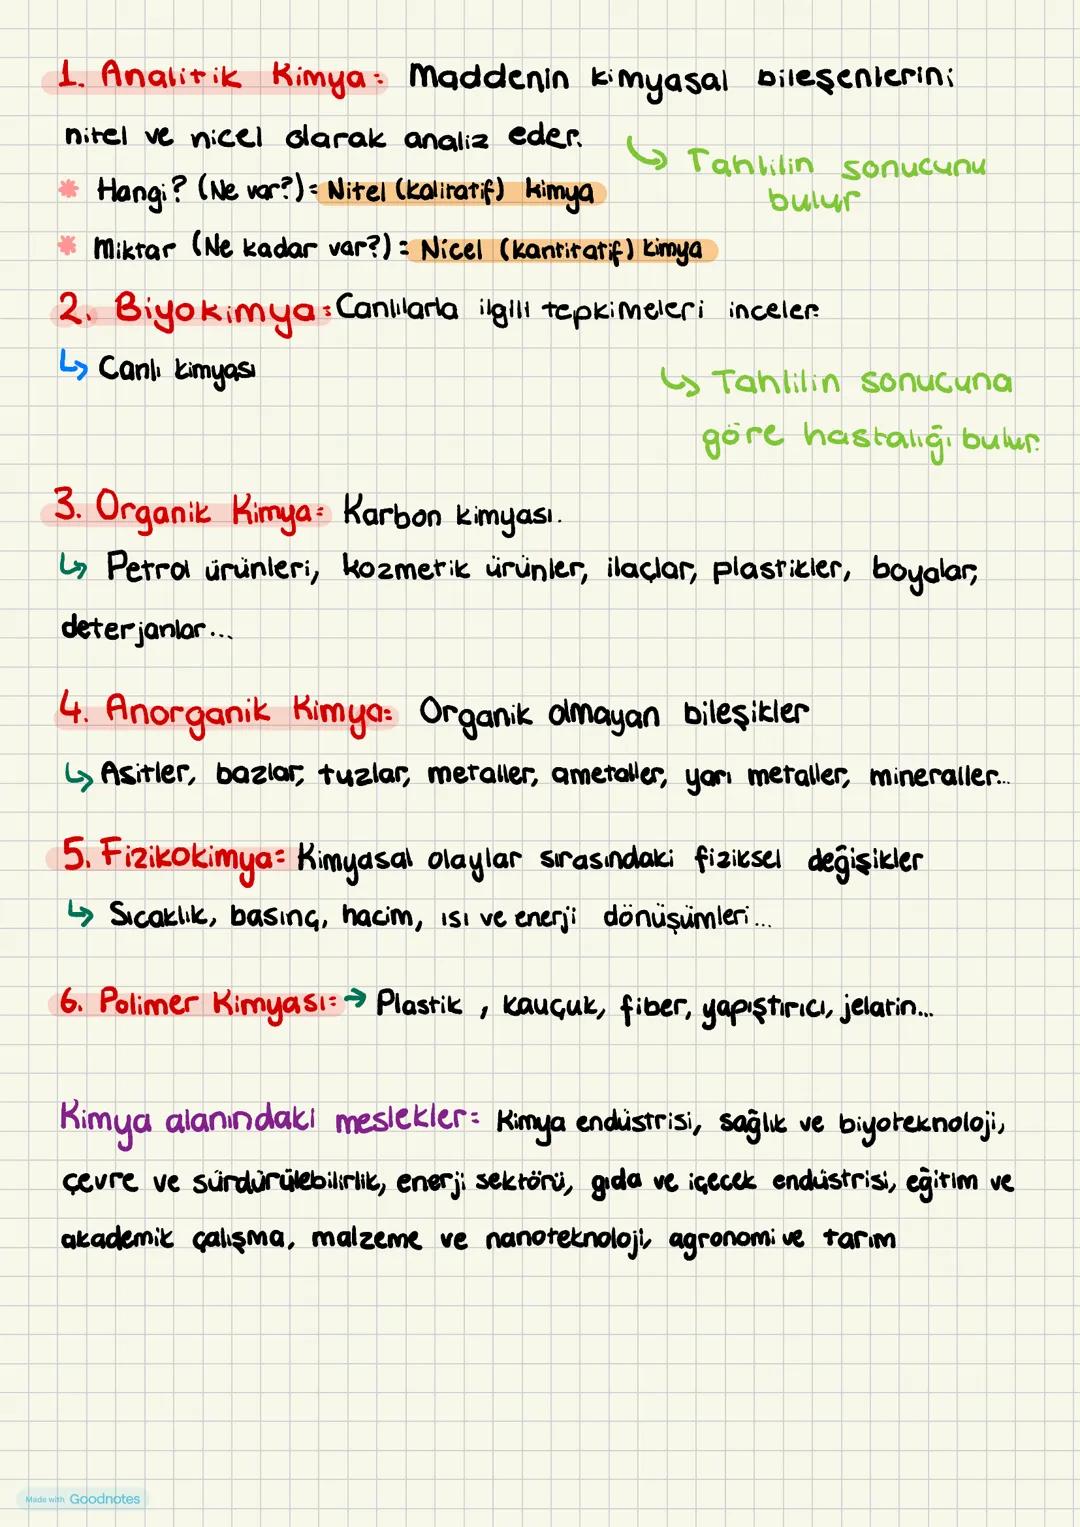 1. Analitik Kimya: Maddenin kimyasal bileşenlerini
nitel ve nicel olarak analiz eder.
↳ Tahlilin sonucunu
bulur
* Hangi? (Ne var?) = Nitel (kalitatif) kimya
* Miktar (Ne kadar var?) = Nicel (kantitatif) kimya
2. Biyokimya: Canlılarla ilgili tepkimeleri inceler.
↳ Canlı kimyası
↳ Tahlilin sonucuna
göre hastalığı bulur.
3. Organik Kimya: Karbon kimyası.
↳ Petrol ürünleri, kozmetik ürünler, ilaçlar, plastikler, boyalar,
deterjanlar...
4. Anorganik Kimya: Organik olmayan bileşikler
↳ Asitler, bazlar, tuzlar, metaller, ametaller, yarı metaller, mineraller...
5. Fizikokimya: Kimyasal olaylar sırasındaki fiziksel değişikler
↳ Sıcaklık, basınç, hacim, ısı ve enerji dönüşümleri...
6. Polimer Kimyası: → Plastik, kauçuk, fiber, yapıştırıcı, jelatin...
Kimya alanındaki meslekler: Kimya endüstrisi, sağlık ve biyoteknoloji,
çevre ve sürdürülebilirlik, enerji sektörü, gıda ve içecek endüstrisi, eğitim ve
akademik çalışma, malzeme ve nanoteknoloji, agronomi ve tarım
Made with Goodnotes